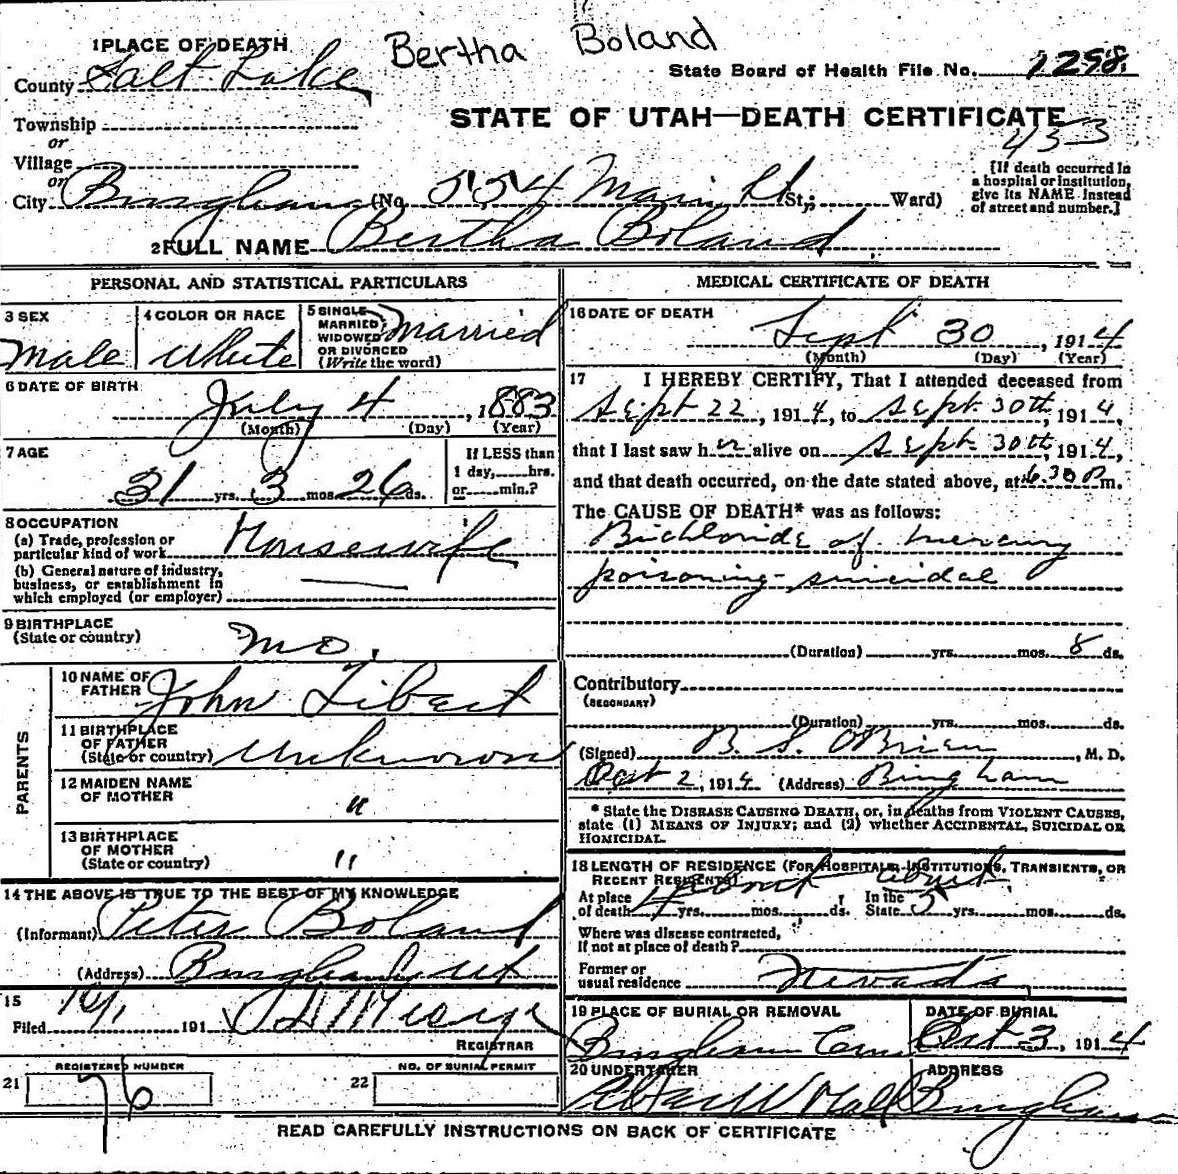 Bertha Boland
1 PLACE OF DEATH
County Salt Lake
State Board of Health File No. 1298
Township
or
Village
or
City Bingham (No. 554 Main St St.; Ward)
STATE OF UTAH—DEATH CERTIFICATE
453
[If death occurred in
a hospital or institution,
give its NAME instead
of street and number.]
2 FULL NAME Bertha Boland
PERSONAL AND STATISTICAL PARTICULARS
3 SEX
Male
4 COLOR OR RACE
White
5 SINGLE
MARRIED
WIDOWED
OR DIVORCED
(Write the word)
Married
6 DATE OF BIRTH
July 4, 1883
(Month) (Day) (Year)
7 AGE
31 yrs. 3 mos. 26 ds.
If LESS than
1 day, hrs.
or min.?
8 OCCUPATION
(a) Trade, profession or
particular kind of work Housewife
(b) General nature of industry,
business, or establishment in
which employed (or employer)
9 BIRTHPLACE
(State or country)
Mo.
PARENTS
10 NAME OF
FATHER
John Tibert
11 BIRTHPLACE
OF FATHER
(State or country) Unknown
12 MAIDEN NAME
OF MOTHER
"
13 BIRTHPLACE
OF MOTHER
(State or country)
"
14 THE ABOVE IS TRUE TO THE BEST OF MY KNOWLEDGE
(Informant) Peter Boland
(Address) Bingham Ut
15
Filed 10/1 191
REGISTRAR
REGISTERED NUMBER
21 76
NO. OF BURIAL PERMIT
22
MEDICAL CERTIFICATE OF DEATH
16 DATE OF DEATH
Sept 30, 1914
(Month) (Day) (Year)
17 I HEREBY CERTIFY, That I attended deceased from
Sept 22, 1914, to Sept. 30th, 1914,
that I last saw her alive on Sept. 30th, 1914,
and that death occurred, on the date stated above, at 6.30 P m.
The CAUSE OF DEATH* was as follows:
Bichloride of mercury
poisoning - suicidal
(Duration) yrs. mos. 8 ds.
Contributory
(SECONDARY)
(Duration) yrs. mos. ds.
(Signed) B. S. O'Brien, M. D.
Oct 2, 1914 (Address) Bingham
* State the DISEASE CAUSING DEATH, or, in deaths from VIOLENT CAUSES,
state (1) MEANS OF INJURY; and (2) whether ACCIDENTAL, SUICIDAL OR
HOMICIDAL.
18 LENGTH OF RESIDENCE (FOR HOSPITALS, INSTITUTIONS, TRANSIENTS, OR
RECENT RESIDENTS)
about about
At place
of death yrs. mos. ds. In the
State yrs. mos. ds.
Where was disease contracted,
if not at place of death?
Former or
usual residence Nevada
19 PLACE OF BURIAL OR REMOVAL
Bingham Cem
DATE OF BURIAL
Oct 3, 1914
20 UNDERTAKER
ADDRESS
Bingham
READ CAREFULLY INSTRUCTIONS ON BACK OF CERTIFICATE